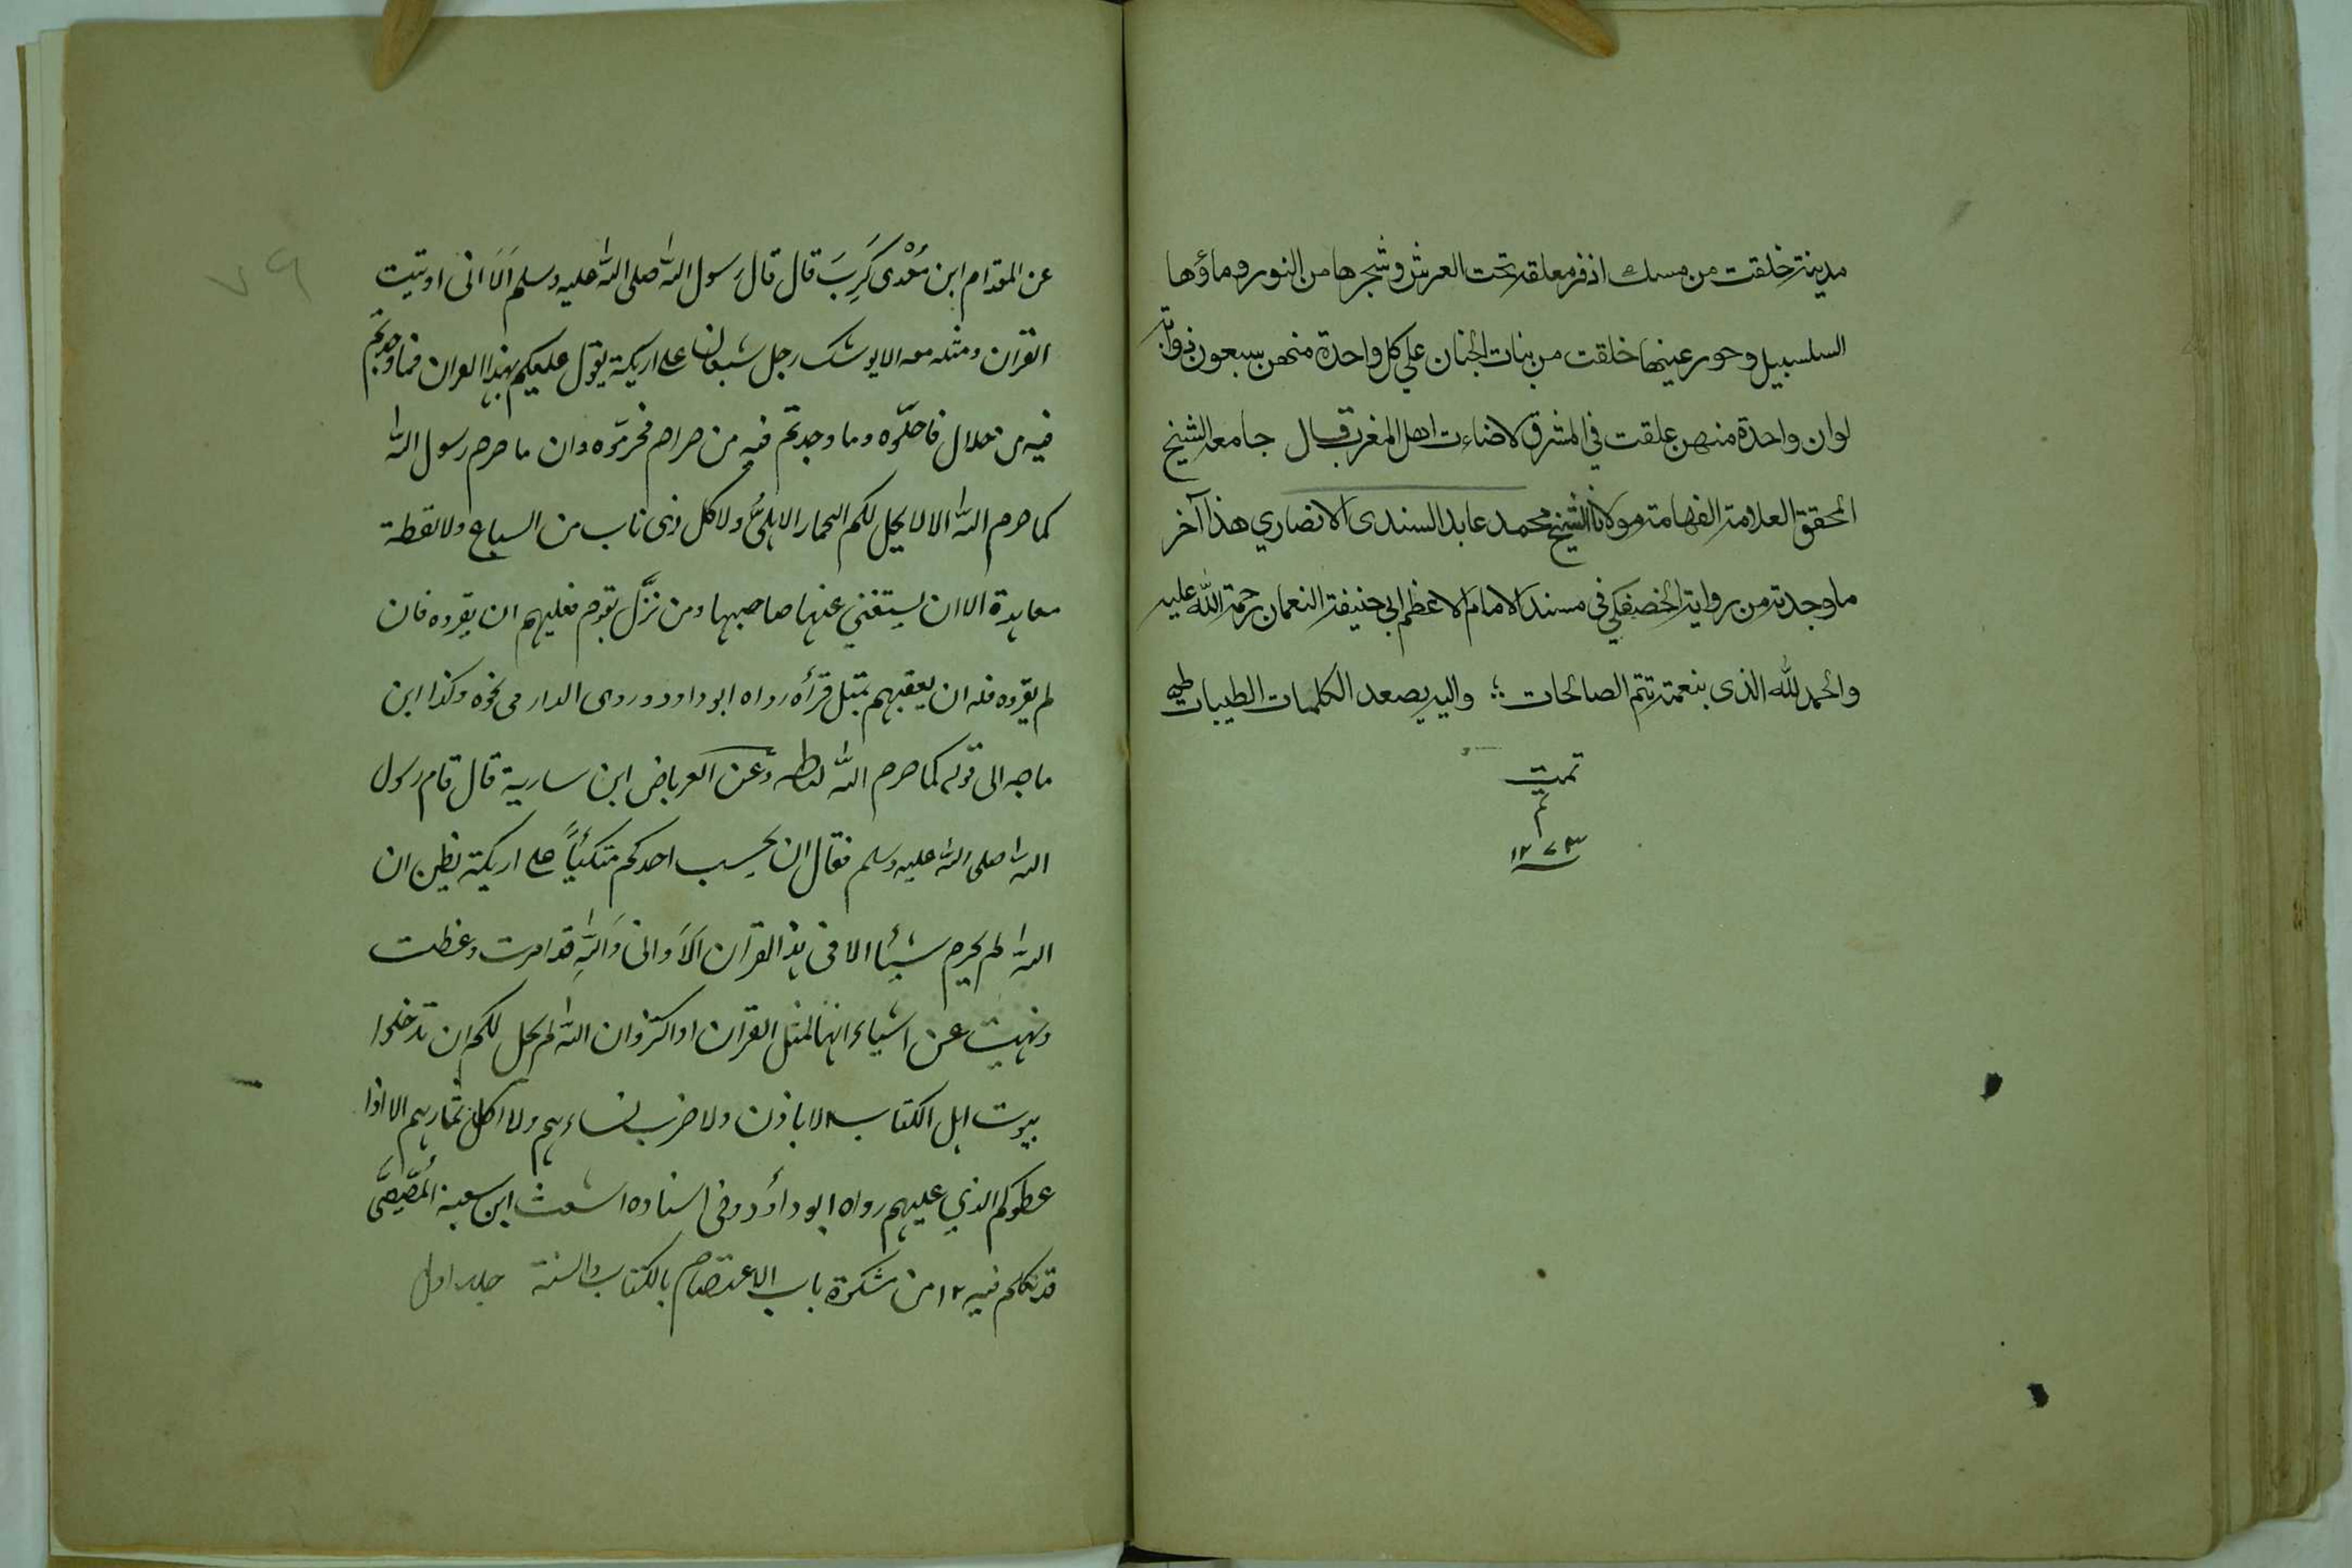 مدينة خلقت من مسك اذفر معلقة تحت العرش وشجرها من النور وماؤها
السلسبيل وحور عينها خلقت من بنات الجنان علي كل واحدة منهن سبعون ذوابة
لوان واحدة منهن علقت في المشرق لاضاءت اهل المغرب قال جامعه الشيخ
المحقق العلامة الفهامة مولانا الشيخ محمد عابد السندى الانصاري هذا آخر
ما وجدته من رواية الحصفكي فى مسند الامام الاعظم ابي حنيفة النعمان رحمة الله عليه
والحمد لله الذى بنعمته تتم الصالحات واليه يصعد الكلمات الطيبات
تمت
م
١٢٧٣
٧٩
عن المقدام ابن مَعْدى كَرِبَ قال قال رسول الله صلى الله عليه وسلم اَلَا انى اوتيت
القران ومثله معه الا يوشك رجل شبعان على اريكة يقول عليكم بهذا القران فما وجدتم
فيه من حلال فاحلّوه وما وجدتم فيه من حرام فحرمّوه وان ما حرم رسول الله
كما حرم الله الا لا يحل لكم الحمار الاهلىّ ولا كل ذى ناب من السباع ولا لقطة
معاهدة الا ان يستغني عنها صاحبها ومن نزّل بقوم فعليهم ان يقروه فان
لم يقروه فله ان يعقبهم بمثل قرأه رواه ابو داود وروى الدارمى نحوه وكذا ابن
ماجه الى قوله كما حرم الله وعن العرباض ابن سارية قال قام رسول
الله صلى الله عليه وسلم فقال ان يحسب احدكم متكئاً على اريكة يظن ان
الله لم يحرم شيئا الا فى هذ القرآن اَلَا وانى وَاللهِ قد امرت وعظت
ونهيت عن اشياء انها لمثل القران او اكثر وان الله لم يحل لكم ان تدخلوا
بيوت اهل الكتاب الا باذن ولا ضرب نساءهم ولا اكل ثمارهم الا اذا
عطوكم الذي عليهم رواه ابو داؤد وفى اسناده اشعث ابن شعبة المصّيصىّ
قد تكلم فيه ١٢ من مشكوة باب الاعتصام بالكتاب والسنة جلد اول